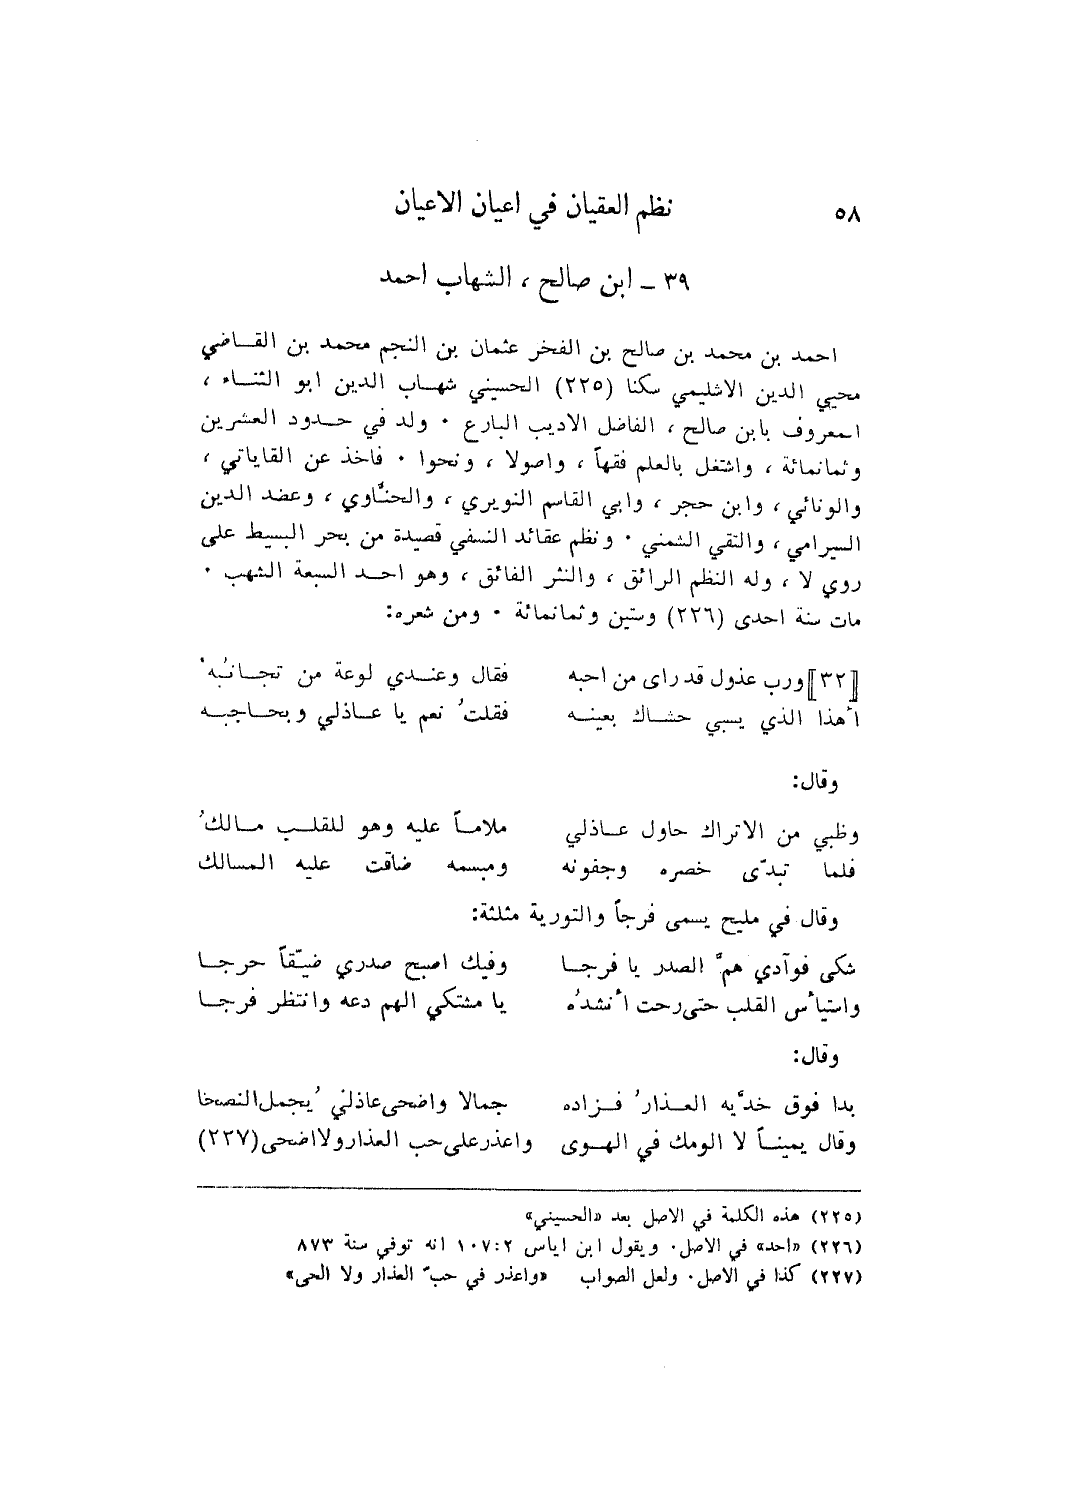 ٥٨ نظم العقيان في اعيان الاعيان
٣٩ ـ ابن صالح ، الشهاب احمد
احمد بن محمد بن صالح بن الفخر عثمان بن النجم محمد بن القـاضي
محيي الدين الاشليمي سكنا (٢٢٥) الحسيني شهـاب الدين ابو الثنـاء ،
المعروف بابن صالح ، الفاضل الاديب البارع ٠ ولد في حـدود العشرين
وثمانمائة ، واشتغل بالعلم فقهاً ، واصولا ، ونحوا ٠ فاخذ عن القاياتي ،
والونائي ، وابن حجر ، وابي القاسم النويري ، والحنّاوي ، وعضد الدين
السيرامي ، والتقي الشمني ٠ ونظم عقائد النسفي قصيدة من بحر البسيط على
روي لا ، وله النظم الرائق ، والنثر الفائق ، وهو احـد السبعة الشهب ٠
مات سنة احدى (٢٢٦) وستين وثمانمائة ٠ ومن شعره:
[٣٢] ورب عذول قد راى من احبه فقال وعنـدي لوعة من تجـانبُه
أهذا الذي يسبي حشـاك بعينـه فقلتُ نعم يا عـاذلي وبحـاجبـه
وقال:
وظبي من الاتراك حاول عـاذلي ملامـاً عليه وهو للقلـب مـالكُ
فلما تبدّى خصره وجفونه ومبسمه ضاقت عليه المسالك
وقال في مليح يسمى فرجاً والتورية مثلثة:
شكى فوآدي همَّ الصدر يا فرجـا وفيك اصبح صدري ضيّقاً حرجـا
واستيأس القلب حتى رحت أنشدُه يا مشتكي الهم دعه وانتظر فرجـا
وقال:
بدا فوق خدَّيه العـذارُ فـزاده جمالا واضحى عاذلي يُجمل النصحا
وقال يمينـاً لا الومك في الهـوى واعذر على حب العذار ولا اضحى (٢٢٧)
(٢٢٥) هذه الكلمة في الاصل بعد «الحسيني»
(٢٢٦) «احد» في الاصل. ويقول ابن اياس ٢:‏١٠٧ انه توفي سنة ٨٧٣
(٢٢٧) كذا في الاصل. ولعل الصواب «واعذر في حبّ العذار ولا الحى»